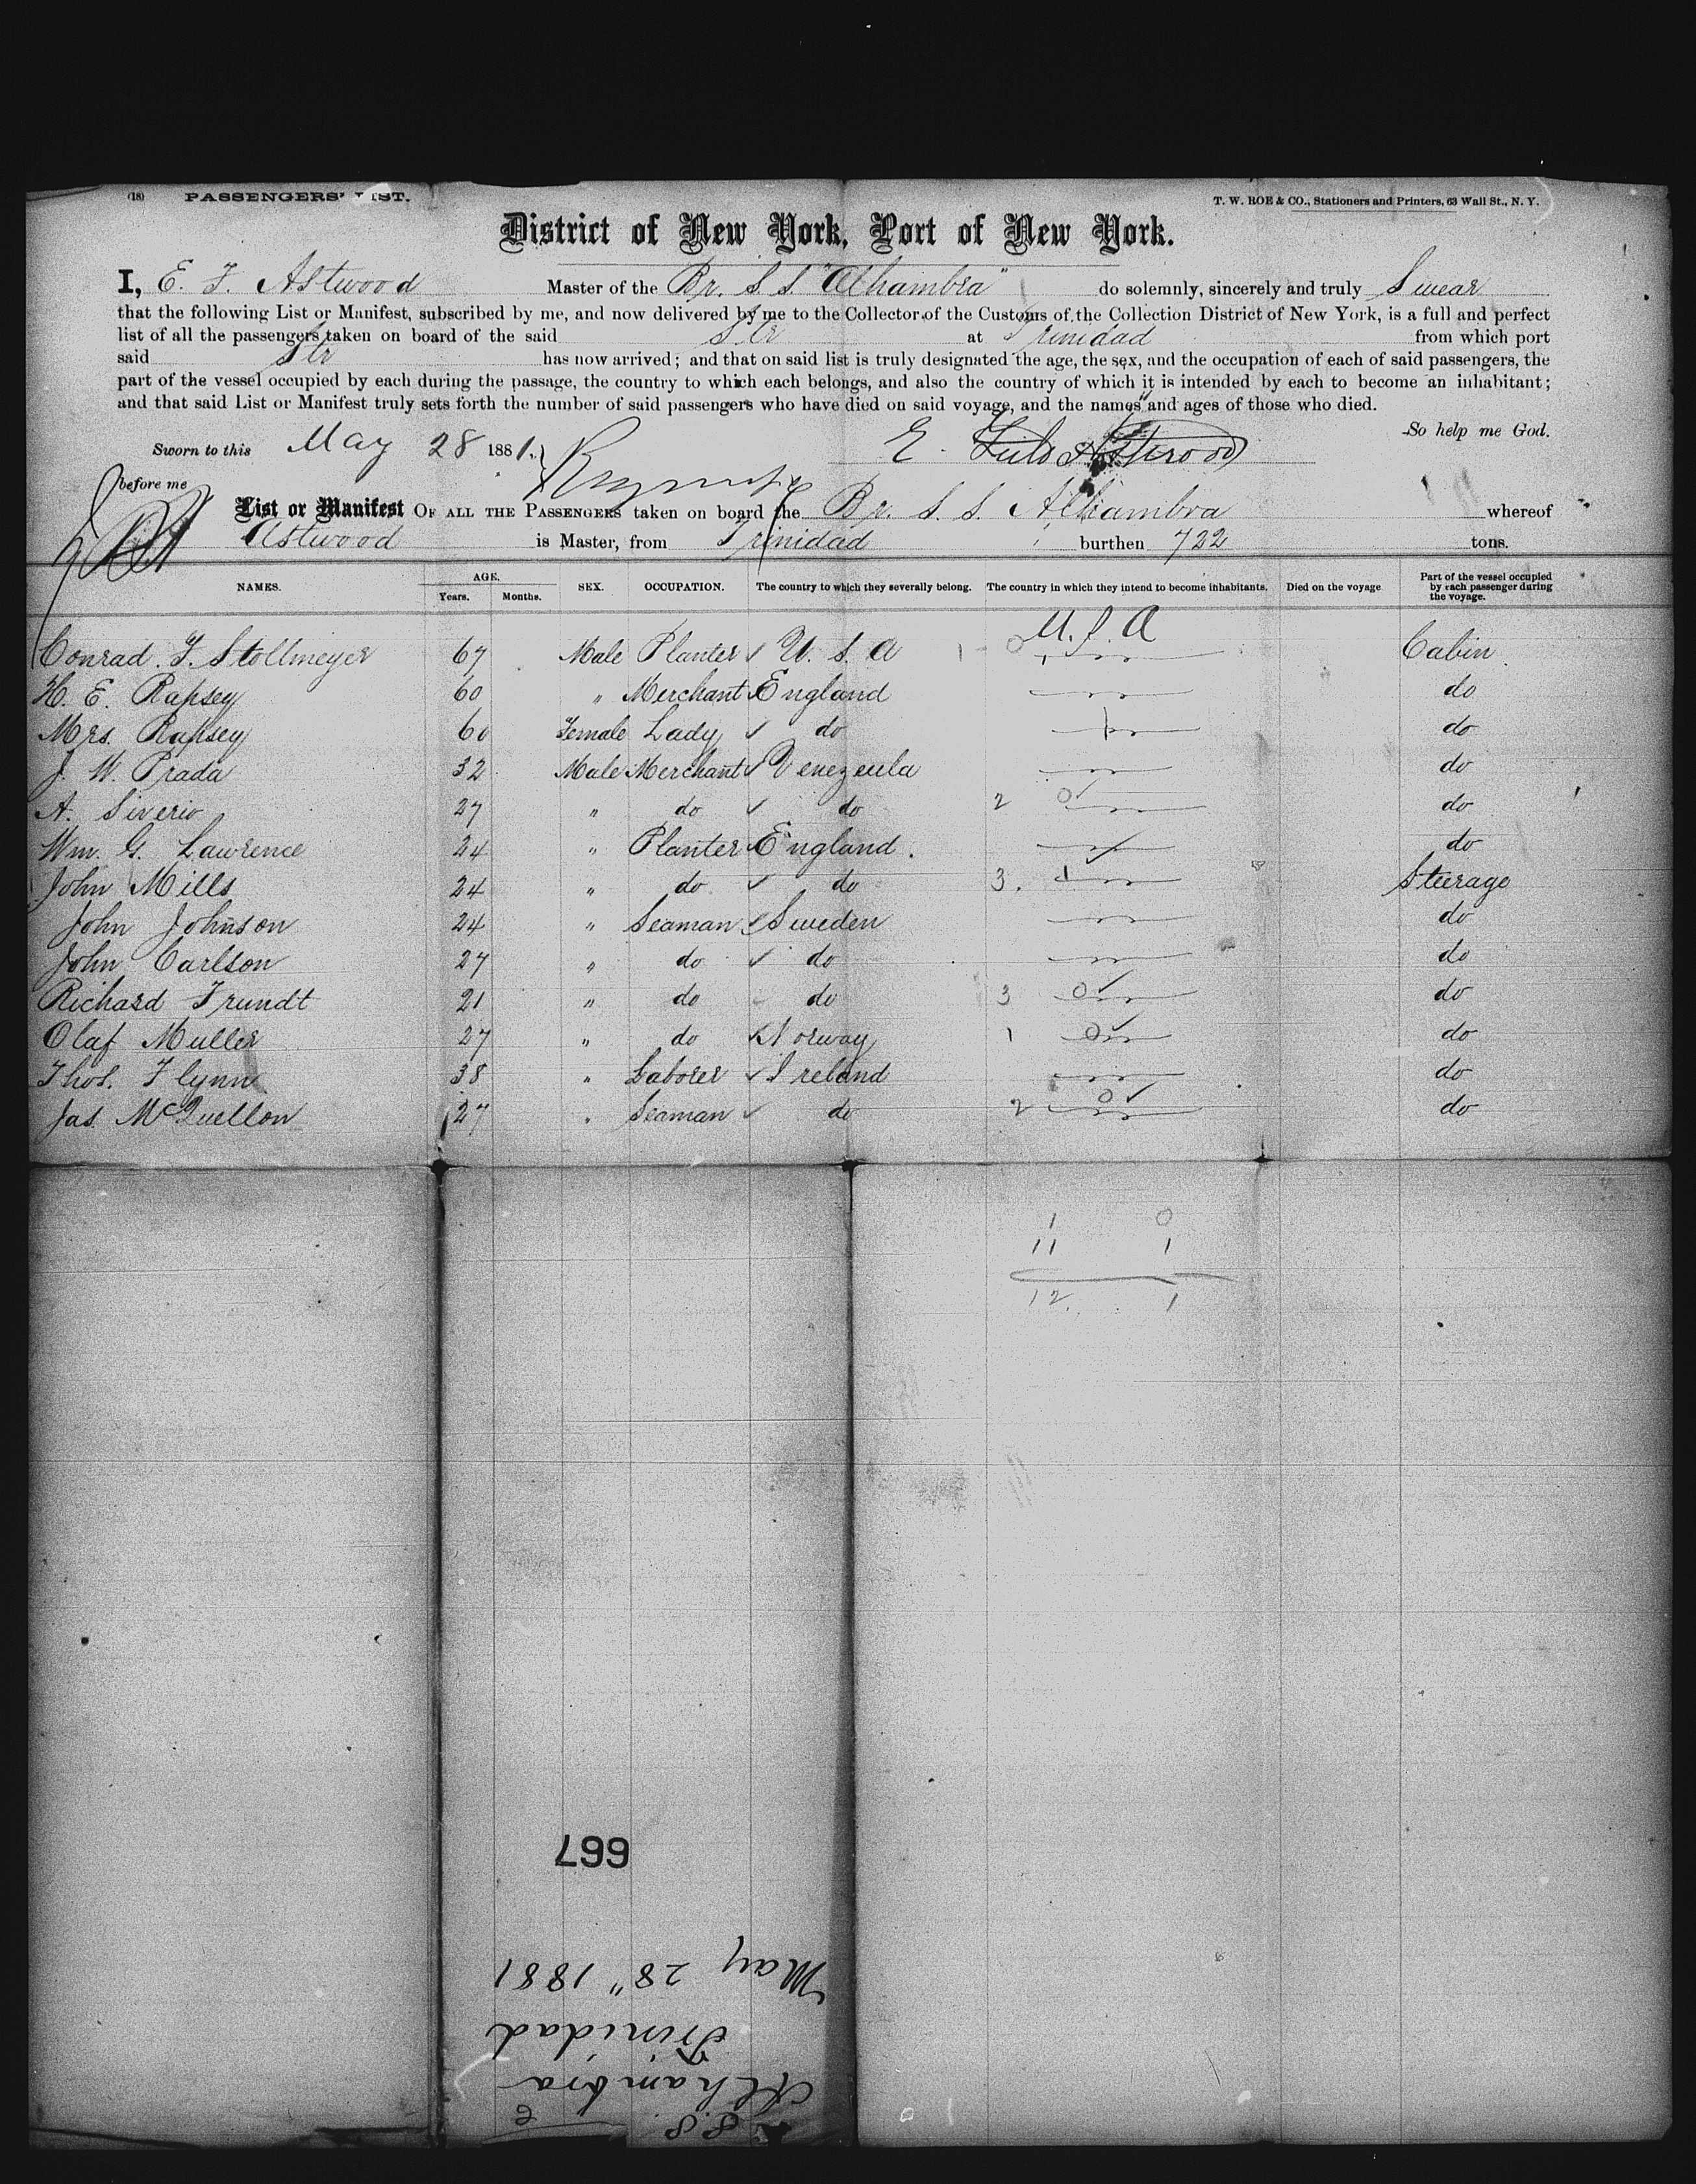 (18) PASSENGERS' LIST. T. W. ROE & CO., Stationers and Printers, 63 Wall St., N. Y.
District of New York, Port of New York.
I, E. F. Astwood Master of the Br. S. S. "Alhambra" do solemnly, sincerely and truly Swear
that the following List or Manifest, subscribed by me, and now delivered by me to the Collector of the Customs of the Collection District of New York, is a full and perfect
list of all the passengers taken on board of the said Str at Trinidad from which port
said Str has now arrived; and that on said list is truly designated the age, the sex, and the occupation of each of said passengers, the
part of the vessel occupied by each during the passage, the country to which each belongs, and also the country of which it is intended by each to become an inhabitant;
and that said List or Manifest truly sets forth the number of said passengers who have died on said voyage, and the names and ages of those who died.
So help me God.
Sworn to this May 28 1881. E. Astwood
before me
List or Manifest OF ALL THE PASSENGERS taken on board the Br. S. S. Alhambra whereof
Astwood is Master, from Trinidad burthen 722 tons.
NAMES. AGE. Years. Months. SEX. OCCUPATION. The country to which they severally belong. The country in which they intend to become inhabitants. Died on the voyage Part of the vessel occupied by each passenger during the voyage.
U. S. A
Conrad. F. Stollmeyer 67 Male Planter U. S. A 1 0 Cabin
H. E. Rapsey 60 " Merchant England do
Mrs. Rapsey 60 Female Lady do 1 do
J. W. Prada 32 Male Merchant Venezeula do
A. Siverio 27 " do do 2 0 do
Wm. G. Lawrence 24 " Planter England. do
John Mills 24 " do do 3. 1 Steerage
John Johnson 24 " Seaman Sweden do
John Carlson 27 " do do do
Richard Trundt 21 " do do 3 0 do
Olaf Muller 27 " do Norway 1 0 do
Thos. Flynn 38 " Laborer Ireland do
Jas. McQuellon 27 " Seaman do 2 0 do
1 0
11 1
12. 1
667
May 28" 1881
Trinidad
Alhambra
S.S.